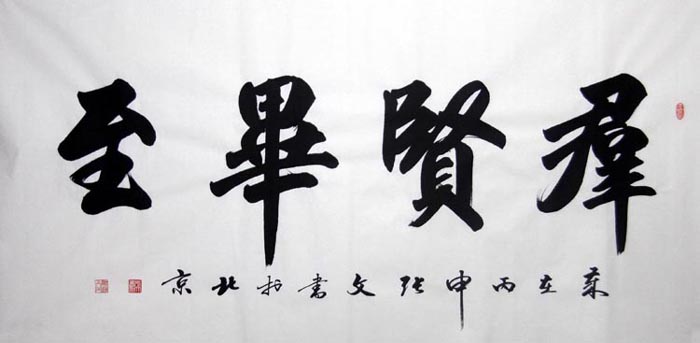 羣賢畢至
歲在丙申张文書於北京